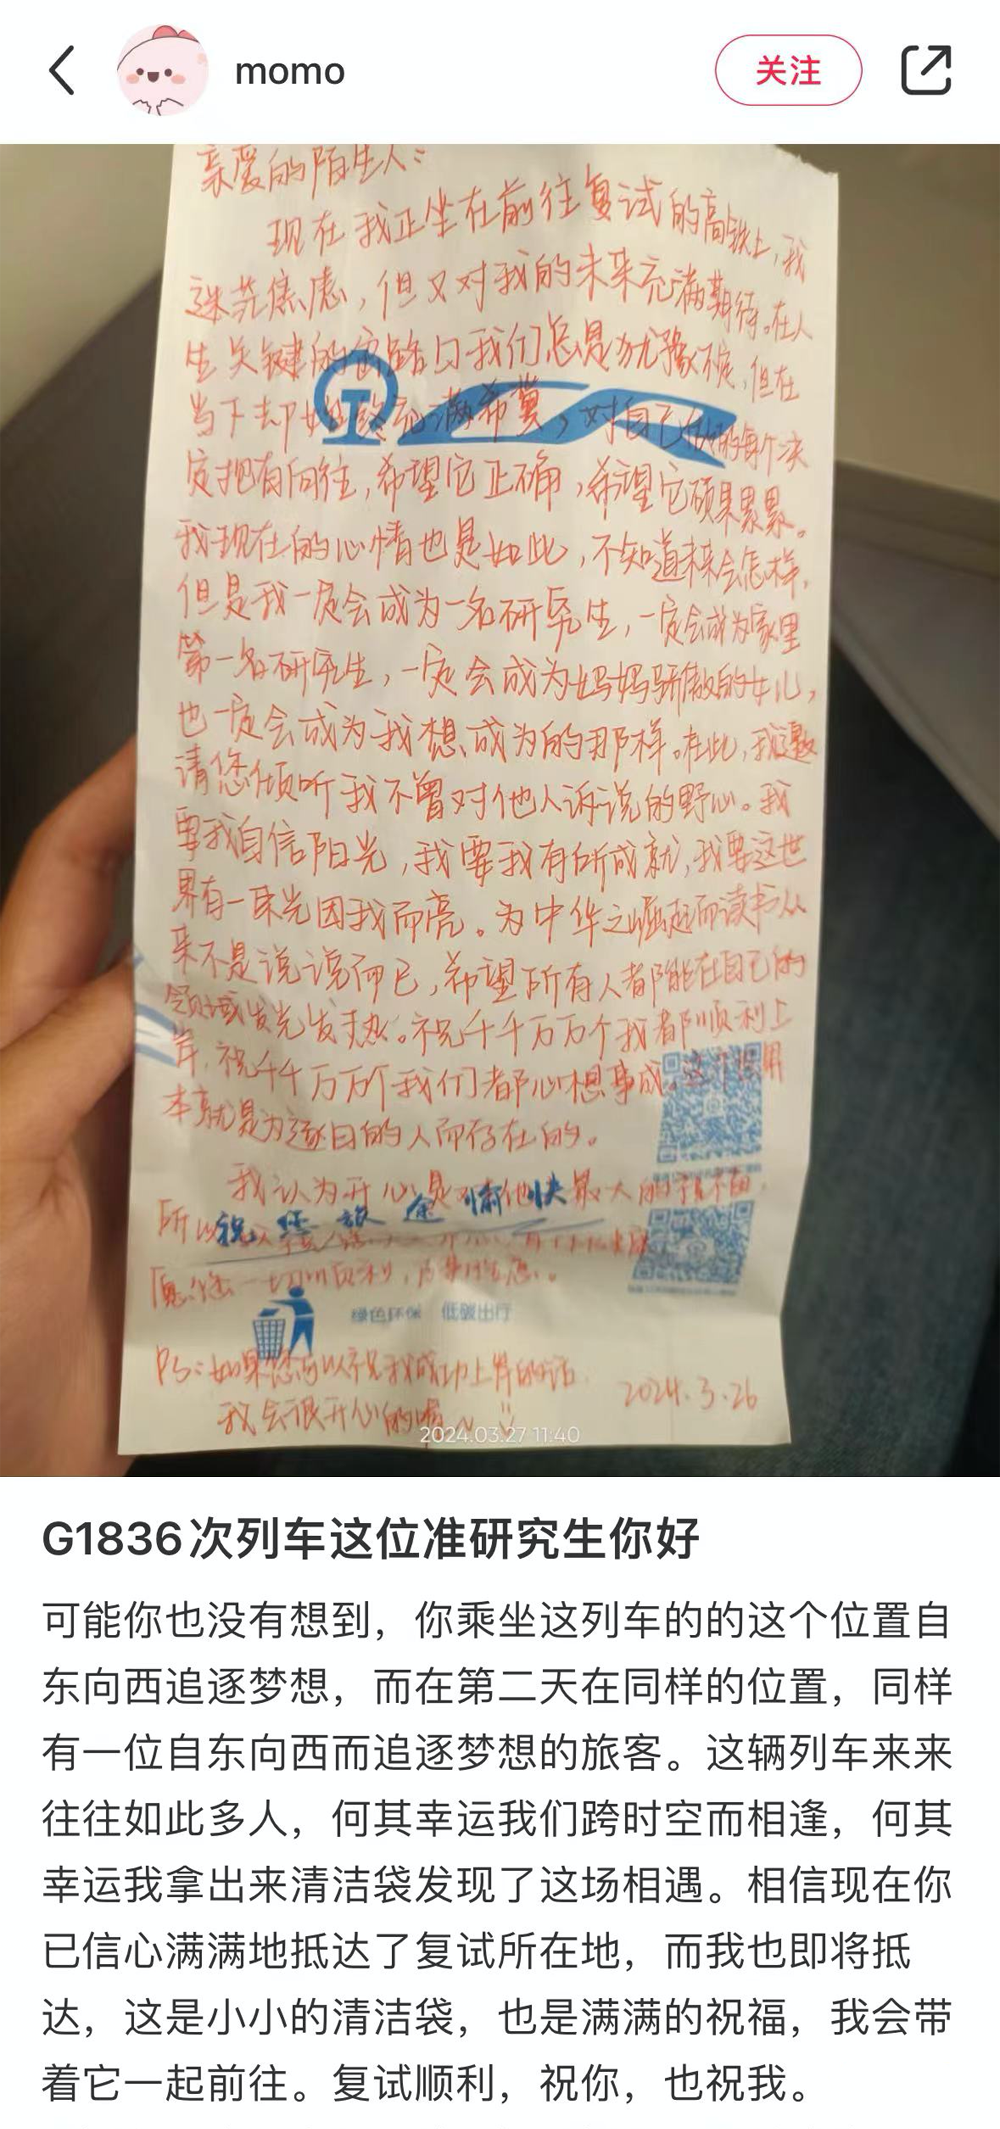 momo
关注
亲爱的陌生人：
现在我正坐在前往复试的高铁上，我
迷茫焦虑，但又对我的未来充满期待。在人
生关键的岔路口我们总是犹豫不定，但在
当下却始终充满希冀，对自己做的每个决
定抱有向往，希望它正确，希望它硕果累累。
我现在的心情也是如此，不知道未来会怎样，
但是我一定会成为一名研究生，一定会成为家里
第一名研究生，一定会成为妈妈骄傲的女儿，
也一定会成为我想成为的那样。在此，我邀
请您倾听我不曾对他人诉说的野心。我
要我自信阳光，我要我有所成就，我要这世
界有一束光因我而亮。为中华之崛起而读书从
来不是说说而已，希望所有人都能在自己的
领域发光发热。祝千千万万个我都顺利上
岸，祝千千万万个我们都心想事成。这个
本就是为逐日的人而存在的。
我认为开心是对其他最大的祝福，
所以
祝您旅途愉快
愿您一切顺利，
绿色环保 低碳出行
PS：如果您可以祝我成功上岸的话
我会很开心的喔～
2024.3.26
2024.03.27 11:40
G1836次列车这位准研究生你好
可能你也没有想到，你乘坐这列车的的这个位置自
东向西追逐梦想，而在第二天在同样的位置，同样
有一位自东向西而追逐梦想的旅客。这辆列车来来
往往如此多人，何其幸运我们跨时空而相逢，何其
幸运我拿出来清洁袋发现了这场相遇。相信现在你
已信心满满地抵达了复试所在地，而我也即将抵
达，这是小小的清洁袋，也是满满的祝福，我会带
着它一起前往。复试顺利，祝你，也祝我。